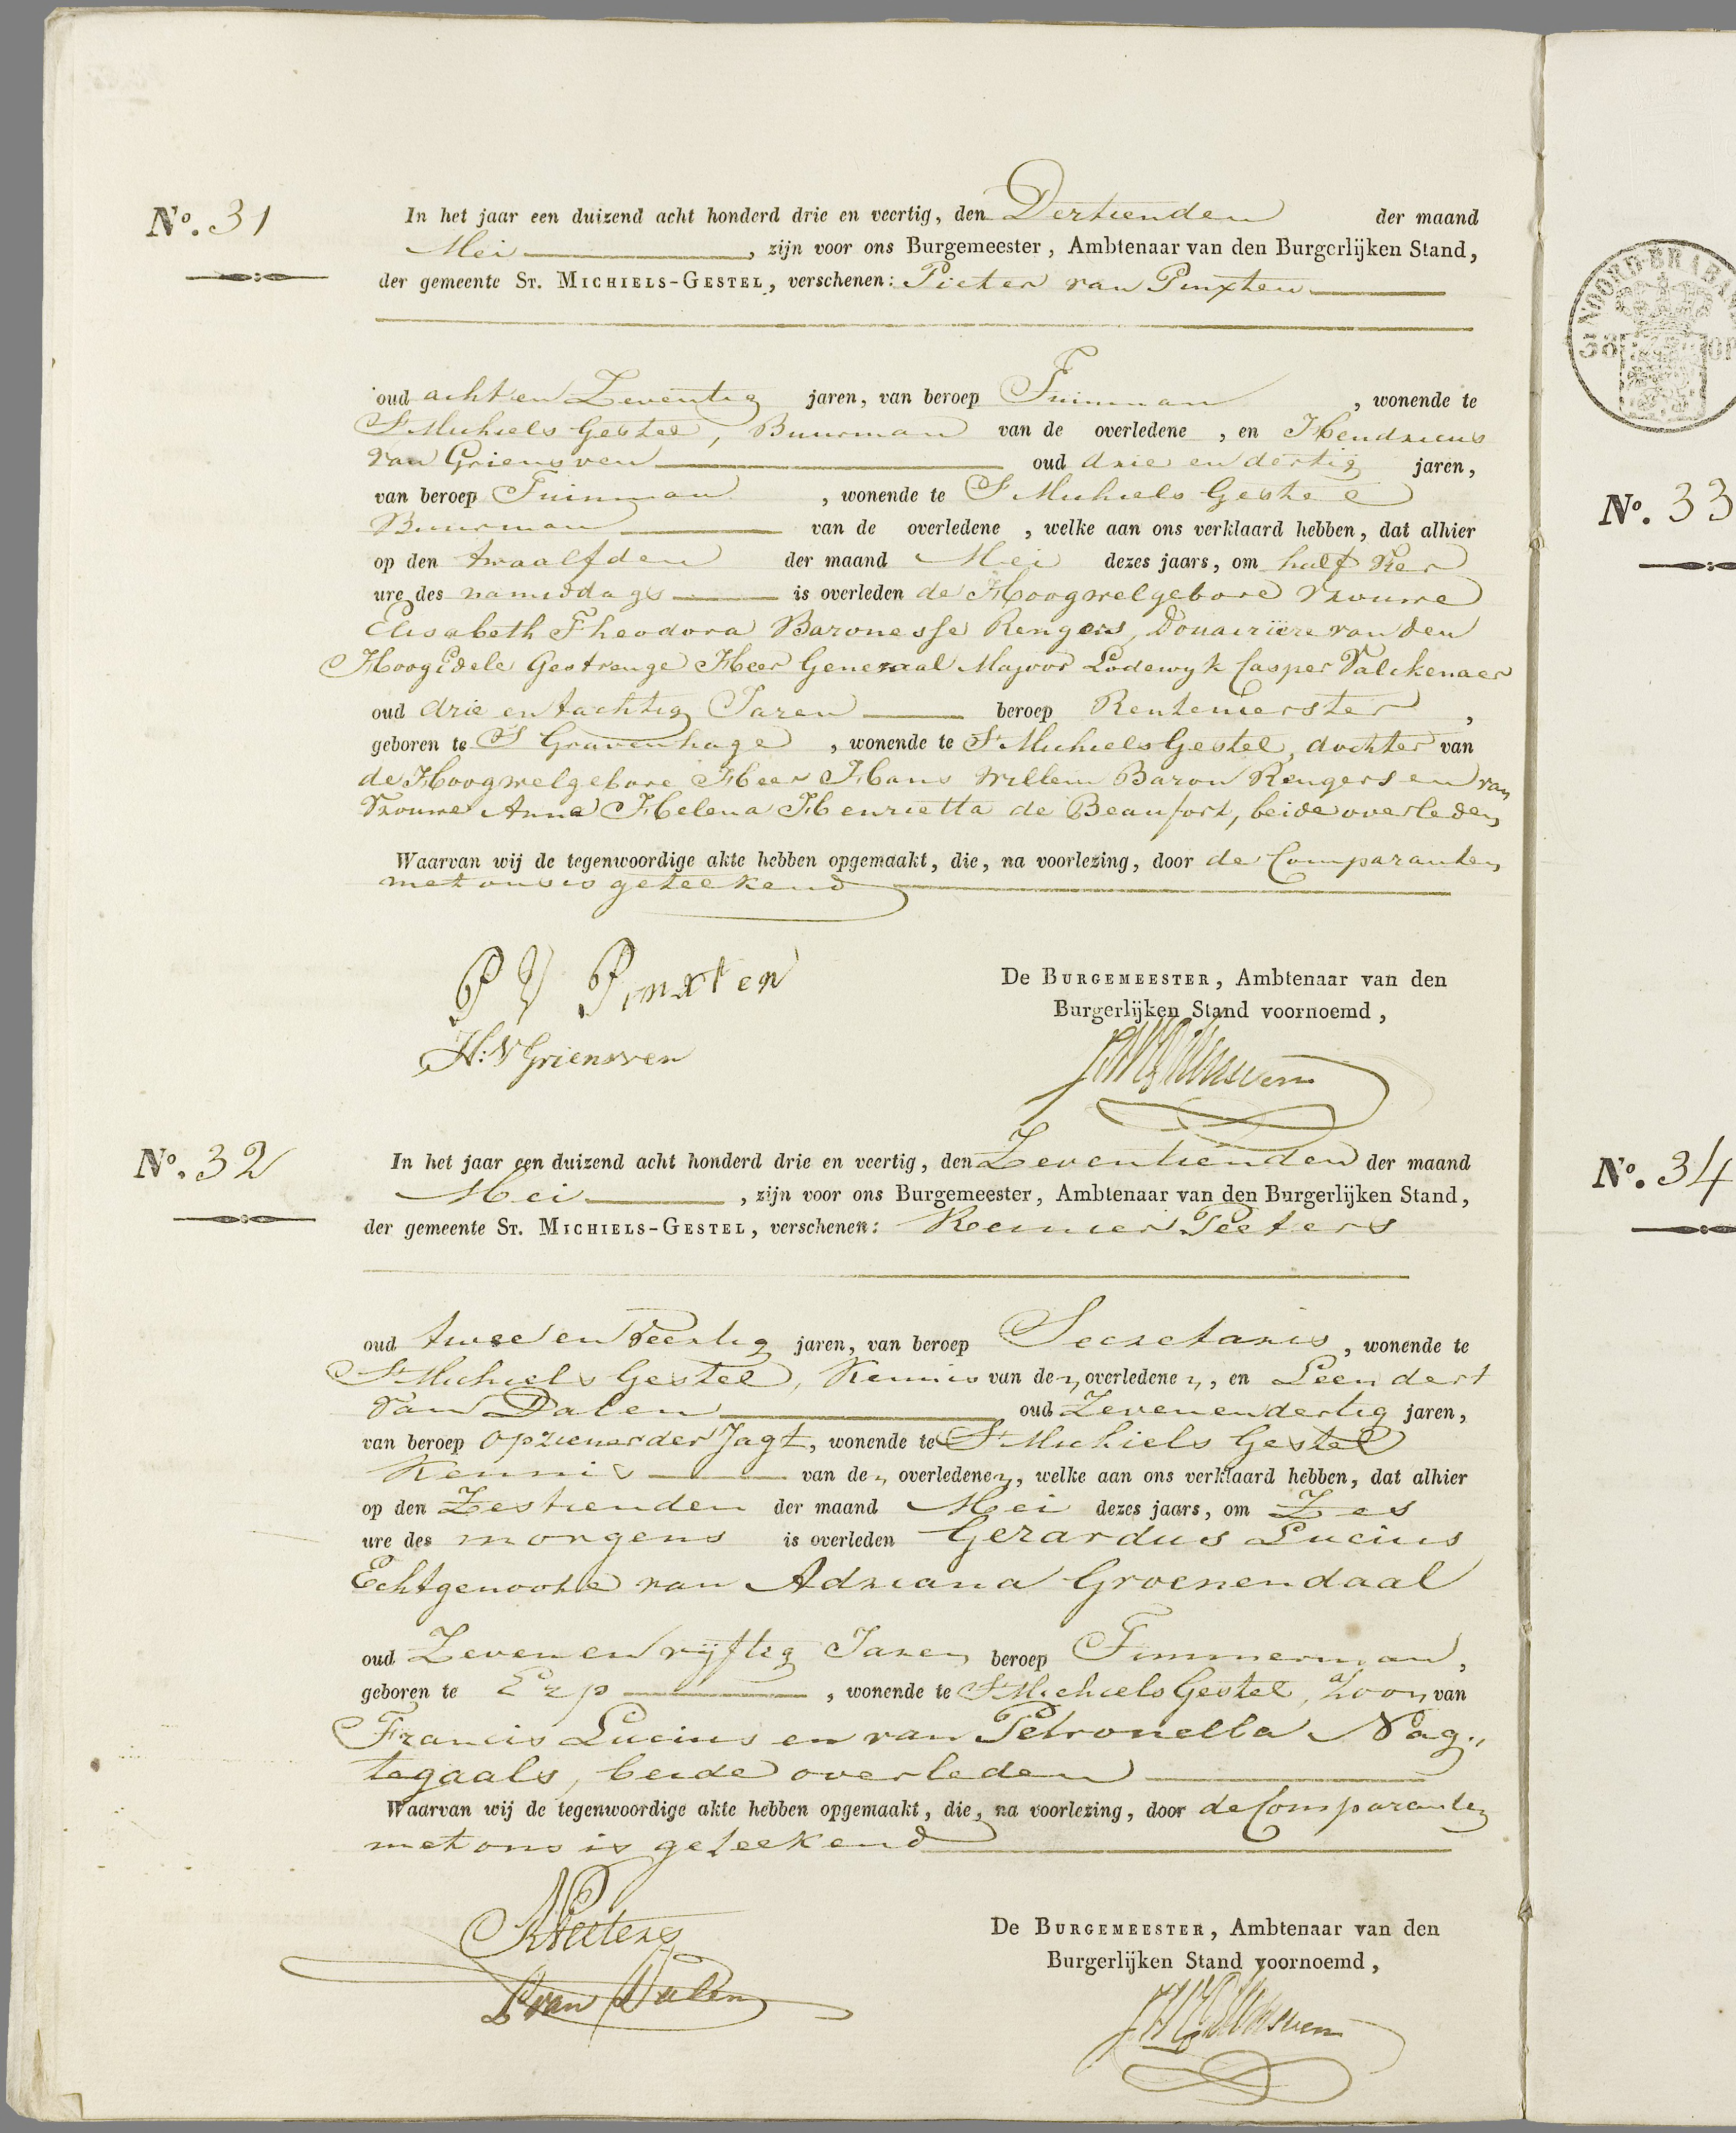 No. 31
In het jaar een duizend acht honderd drie en veertig, den Dertienden der maand
Mei, zijn voor ons Burgemeester, Ambtenaar van den Burgerlijken Stand,
der gemeente St. Michiels-Gestel, verschenen: Pieter van Pinxten
oud acht en Zeventig jaren, van beroep Tuinman, wonende te
St Michiels Gestel, Buurman van de overledene, en Hendricus
van Griensven oud drie en dertig jaren,
van beroep Tuinman, wonende te St Michiels Gestel
Buurman van de overledene, welke aan ons verklaard hebben, dat alhier
op den twaalfden der maand Mei dezes jaars, om half Vier
ure des namiddags is overleden de Hoogwelgebore Vrouwe
Elisabeth Theodora Baronesse Rengers, Douairiere van den
HoogEdele Gestrenge Heer Generaal Majoor Lodewyk Casper Valckenaer
oud drie en tachtig Jaren beroep Rentenierster,
geboren te S Gravenhage, wonende te St Michiels Gestel, dochter van
de Hoogwelgebore Heer Hans Willem Baron Rengers en van
Vrouwe Anna Helena Henrietta de Beaufort, beide overleden
Waarvan wij de tegenwoordige akte hebben opgemaakt, die, na voorlezing, door de Comparanten
met ons is geteekend
P V Pinxten
H: V Griensven
De Burgemeester, Ambtenaar van den
Burgerlijken Stand voornoemd,
No. 32
In het jaar een duizend acht honderd drie en veertig, den Zeventienden der maand
Mei, zijn voor ons Burgemeester, Ambtenaar van den Burgerlijken Stand,
der gemeente St. Michiels-Gestel, verschenen: Reinier Peeters
oud twee en Veertig jaren, van beroep Secretaris, wonende te
St Michiels Gestel, Kennis van den overledenen, en Leendert
van Dalen oud Zeven en dertig jaren,
van beroep opziener der Jagt, wonende te St Michiels Gestel
Kennis van den overledenen, welke aan ons verklaard hebben, dat alhier
op den Zestienden der maand Mei dezes jaars, om Zes
ure des morgens is overleden Gerardus Lucius
Echtgenoote van Adriana Groenendaal
oud Zeven en vijftig Jaren beroep Timmerman,
geboren te Erp, wonende te St Michiels Gestel, Zoon van
Francis Lucius en van Petronella Nag„
tegaals, beide overleden
Waarvan wij de tegenwoordige akte hebben opgemaakt, die, na voorlezing, door de Comparanten
met ons is geteekend
R Peeters
L van Dalen
De Burgemeester, Ambtenaar van den
Burgerlijken Stand voornoemd,
NOORD-BRABA
38
No. 33
No. 34